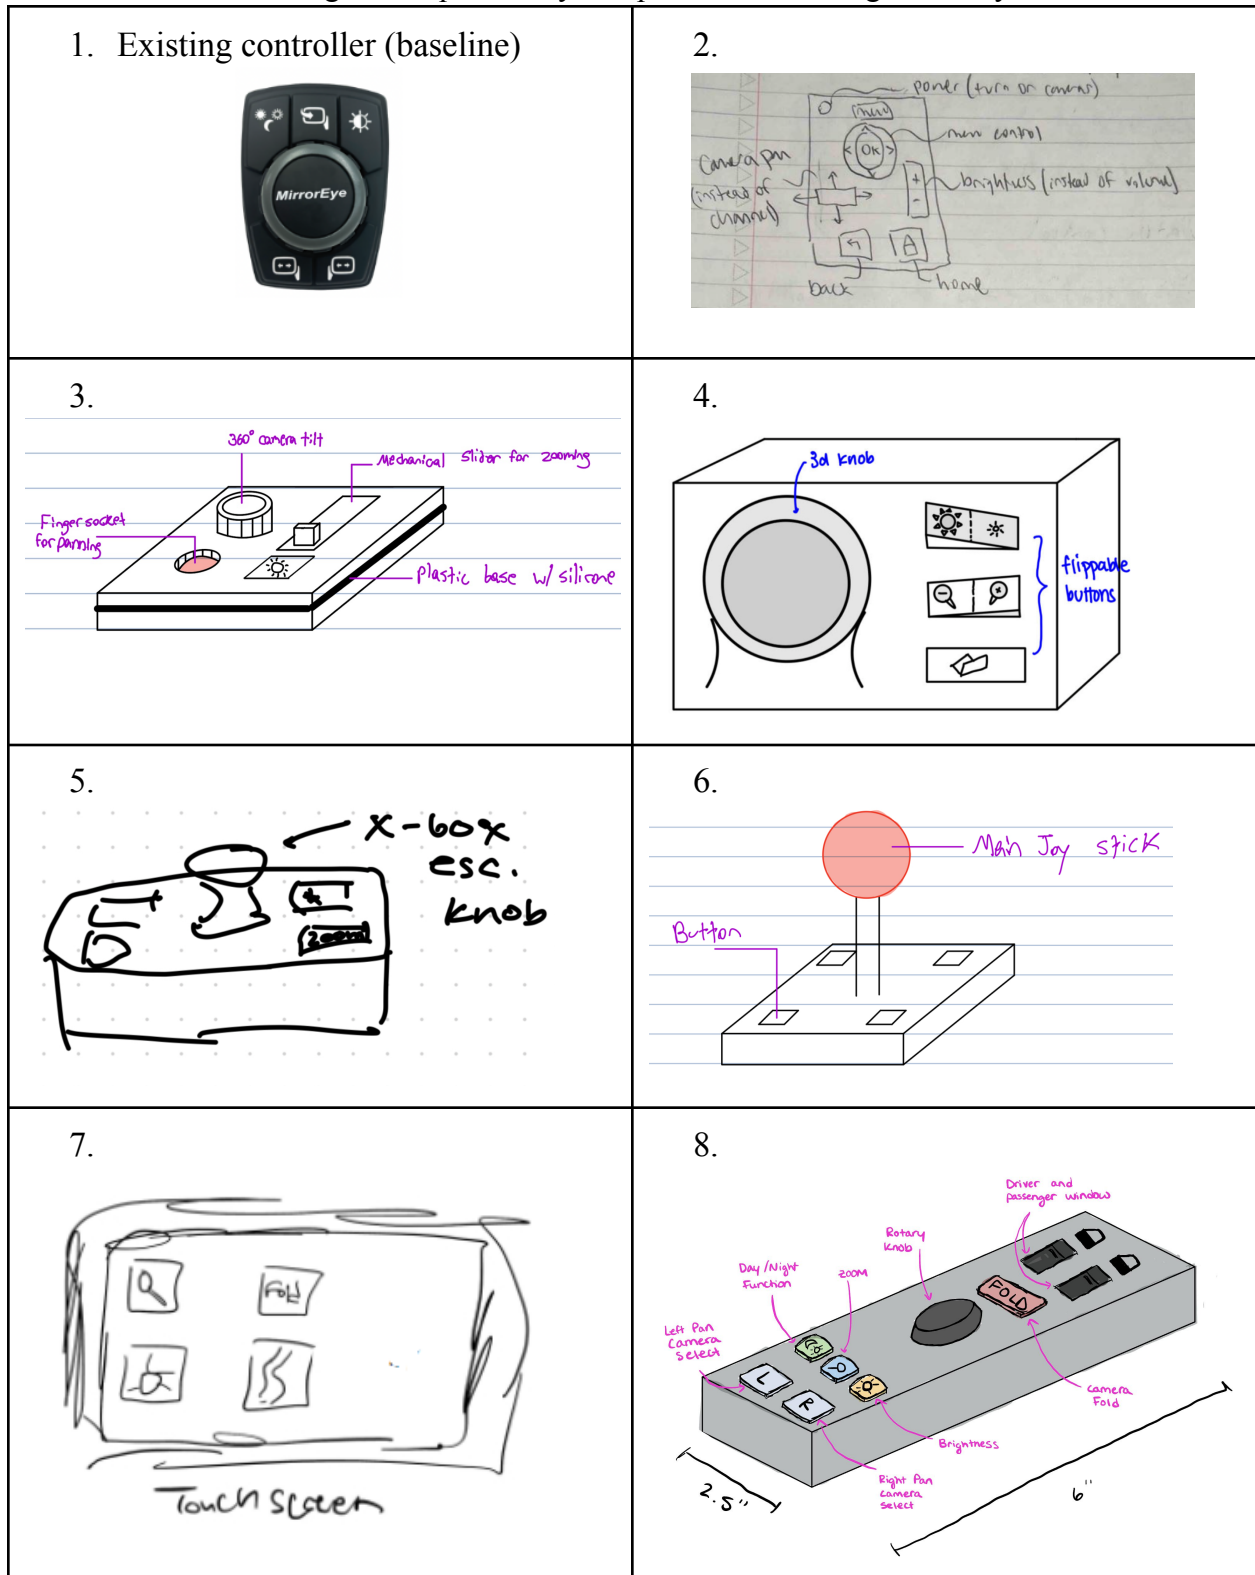 1. Existing controller (baseline)
MirrorEye
2.
power (turn on cameras)
menu
menu control
OK
Camera pan
(instead of
channel)
+
-
brightness (instead of volume)
back
home
3.
360° camera tilt
Mechanical Slider for zooming
Finger socket
for panning
Plastic base w/ silicone
4.
3d knob
flippable
buttons
5.
X-box
esc.
knob
zoom
6.
Main Joy stick
Button
7.
FOLD
Touch screen
8.
Driver and
passenger window
Rotary
Knob
Day/Night
Function
ZOOM
Left Pan
Camera
Select
FOLD
L
R
Camera
Fold
Brightness
Right Pan
Camera
Select
2.5"
6"